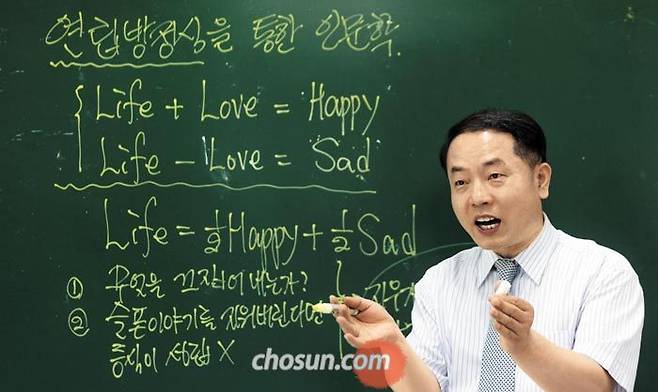 연립방정식을 통한 인문학.
Life + Love = Happy
Life - Love = Sad
Life = 1/2 Happy + 1/2 Sad
① 무엇을 끄집어 내는가?
② 슬픈이야기를 지워버린다면
등식이 성립 X
chosun.com